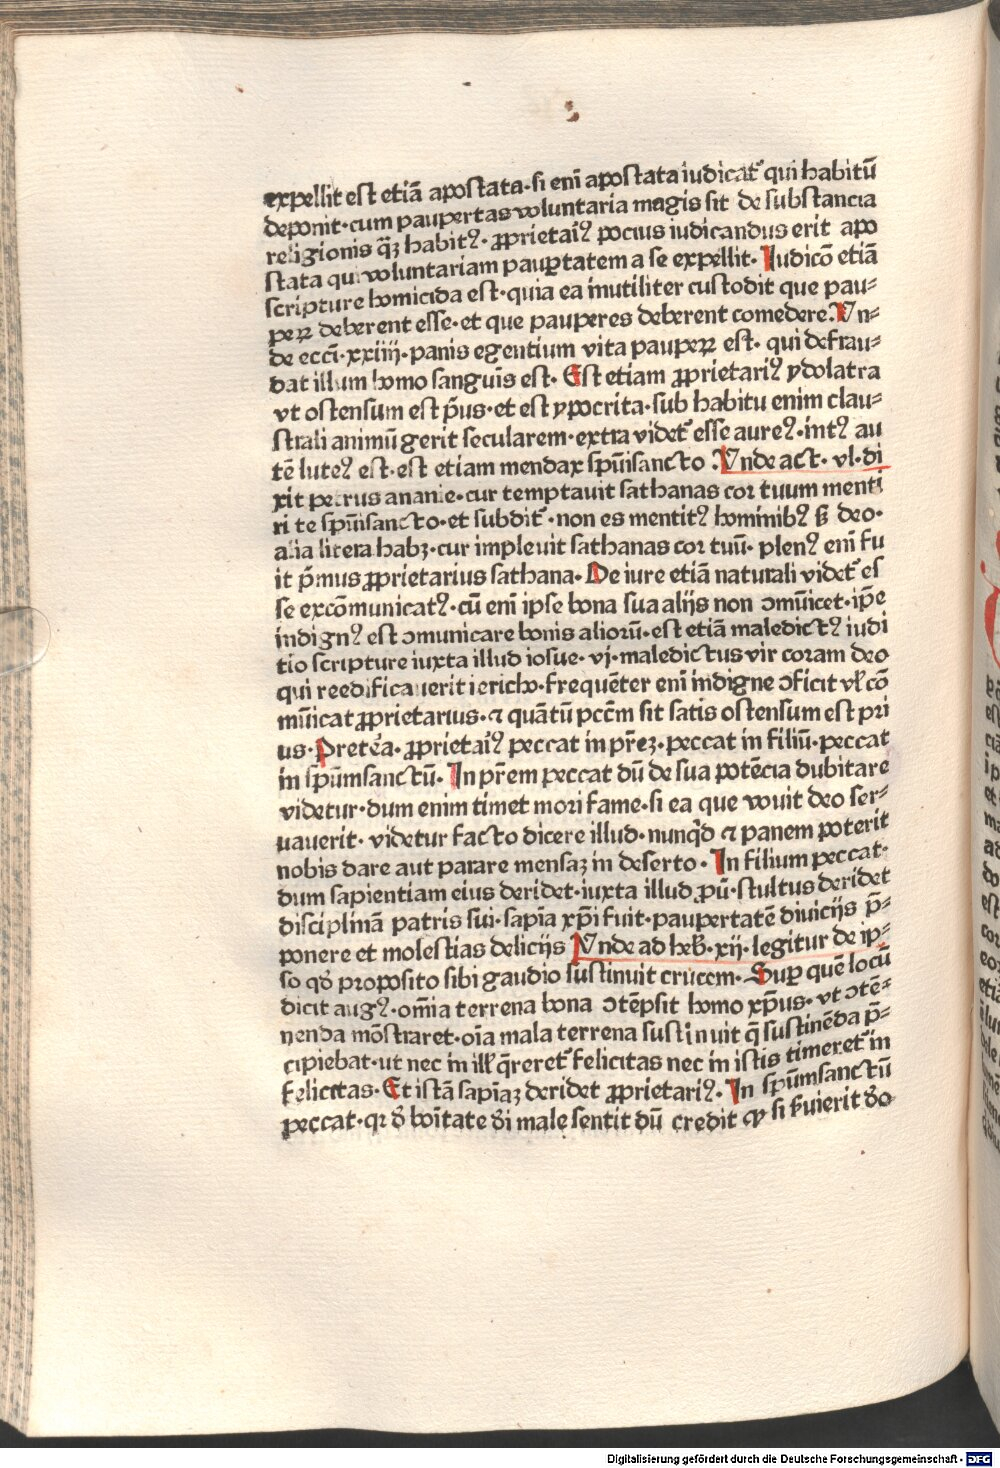 expellit est etiā apostata·si eni̅ apostata iudicat᷑ qui habitū
deponit·cum paupertas voluntaria magis sit de substancia
religionis qȝ habitꝰ·ꝓprietaīꝰ pocius iudicandus erit apo
stata qui voluntariam pauꝑtatem a se expellit· Iudicō etiā
scripture homicida est·quia ea inutiliter custodit que pau⸗
peꝝ deberent esse·et que pauperes deberent comedere. Vn⸗
de ecci̅·xxiiii·panis egentium vita paupeꝝ est· qui defrau⸗
dat illum homo sanguīs est· Est etiam ꝓprietariꝰ ydolatra
vt ostensum est p̄us·et est ypocrita·sub habitu enim clau⸗
strali animū gerit secularem·extra videt᷑ esse aureꝰ·intꝰ au
tē luteꝰ est·est etiam mendax spūisancto. Vnde act· vl·di
xit petrus ananie·cur temptauit sathanas cor tuum menti
ri te spūisancto·et subdit᷑·non es mentitꝰ hominibꝰ sꝫ deo·
alia litera habꝫ·cur impleuit sathanas cor tuū· plenꝰ eni̅ fu
it p̄mus ꝓprietarius sathana· De iure etiā naturali videt᷑ es
se excōmunicatꝰ·cū eni̅ ipse bona sua alijs non ↄmūicet·ip̄e
indignꝰ est ↄmunicare bonis alioꝛū·est etiā maledictꝰ iudi
tio scripture iuxta illud iosue·vj·maledictus vir coram deo
qui reedificauerit iericho·frequēter eni̅ indigne ↄficit vl̕ cō
mūicat ꝓprietarius·⁊ quātū pcc̄m sit satis ostensum est pri
us· Preteā· ꝓprietaīꝰ peccat in pr̄eꝫ·peccat in filiū·peccat
in sp̄umsanctū· In pr̄em peccat dū de sua potēcia dubitare
videtur·dum enim timet mori fame·si ea que vouit deo ser⸗
uauerit· videtur facto dicere illud·nunqd̄ ⁊ panem poterit
nobis dare aut parare mensaꝫ in deserto· In filium peccat·
dum sapientiam eius deridet·iuxta illud ꝓū·stultus deridet
disciplinā patris sui·sapīa xp̄i fuit·paupertatē diuicijs p̄⸗
ponere et molestias delicijs Vnde ad heb̄·xij·legitur de ip⸗
so qd̕ proposito sibi gaudio sustinuit crucem· Suꝑ quē locū
dicit augꝰ·om̄ia terrena bona ↄtēpsit homo xp̄us·vt ↄtē⸗
nenda mōstraret·oīa mala terrena sustinuit q̄ sustinēda p̄⸗
cipiebat·ut nec in ill̕ q̄reret᷑ felicitas nec in istis timeret᷑ in
felicitas· Et istā sapīaꝫ deridet ꝓprietariꝰ· In sp̄umsanctū
peccat·qꝛ d̕ boītate d̕i male sentit dū credit ꝙ si s̕uierit d̕o
Digitalisierung gefördert durch die Deutsche Forschungsgemeinschaft · DFG